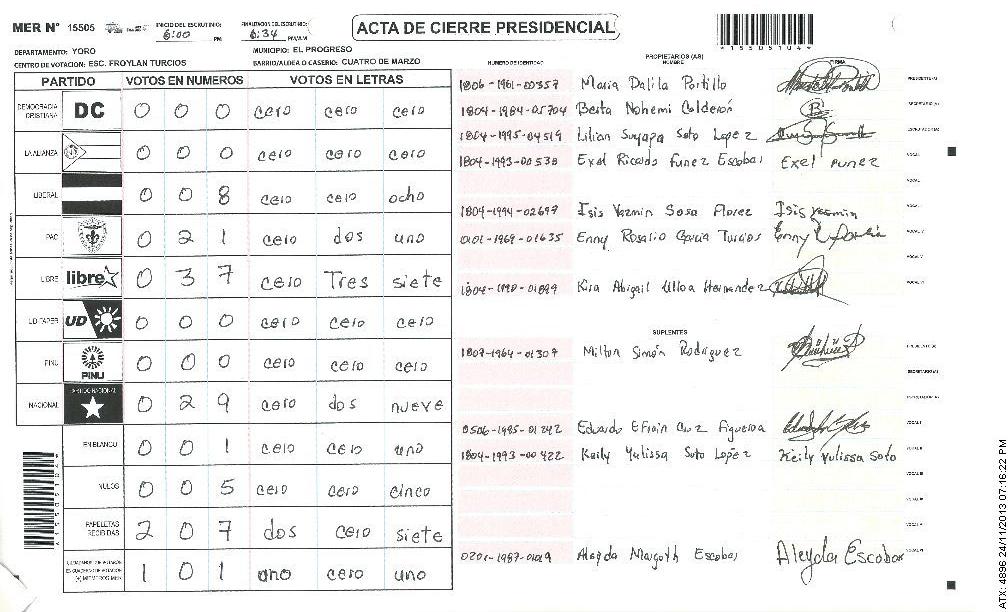 MER N° 15505
INICIO DEL ESCRUTINIO: 6:00 PM
FINALIZACION DEL ESCRUTINIO: 6:34 PM/AM
ACTA DE CIERRE PRESIDENCIAL
DEPARTAMENTO: YORO
MUNICIPIO: EL PROGRESO
CENTRO DE VOTACION: ESC. FROYLAN TURCIOS
BARRIO/ALDEA O CASERIO: CUATRO DE MARZO
PARTIDO VOTOS EN NUMEROS VOTOS EN LETRAS
DEMOCRACIA CRISTIANA DC 0 0 0 cero cero cero
LA ALIANZA 0 0 0 cero cero cero
LIBERAL 0 0 8 cero cero ocho
PAC 0 2 1 cero dos uno
LIBRE libre 0 3 7 cero Tres siete
UD FAPER UD 0 0 0 cero cero cero
PINU PINU 0 0 0 cero cero cero
NACIONAL 0 2 9 cero dos nueve
EN BLANCO 0 0 1 cero cero uno
NULOS 0 0 5 cero cero cinco
PAPELETAS RECIBIDAS 2 0 7 dos cero siete
1 0 1 uno cero uno
NUMERO DE IDENTIDAD PROPIETARIOS (AS) NOMBRE FIRMA
1806-1961-00357 Maria Dalila Portillo PRESIDENTE(A)
1804-1984-05704 Berta Nohemi Calderón SECRETARIO(A)
1804-1995-04519 Lilian Suyapa Soto Lopez ESCRUTADOR(A)
1804-1993-00538 Exel Ricardo Funez Escobar Exel Funez VOCAL I
1804-1994-02697 Isis Yazmin Sosa Florez Isis Yasmin
0101-1969-01635 Enny Rosario Garcia Turcios Enny
1804-1990-01899 Kira Abigail Ulloa Hernandez
SUPLENTES
1807-1964-01307 Milton Simón Rodriguez PRESIDENTE(A)
SECRETARIO(A)
0506-1995-01242 Eduardo Efrain Cruz Figueroa VOCAL I
1804-1993-00422 Keily Yulissa Soto Lopez Keily Yulissa Soto VOCAL II
VOCAL III
0201-1987-01019 Aleyda Margoth Escobar Aleyda Escobar
ATX: 4896 24/11/2013 07:16:22 PM